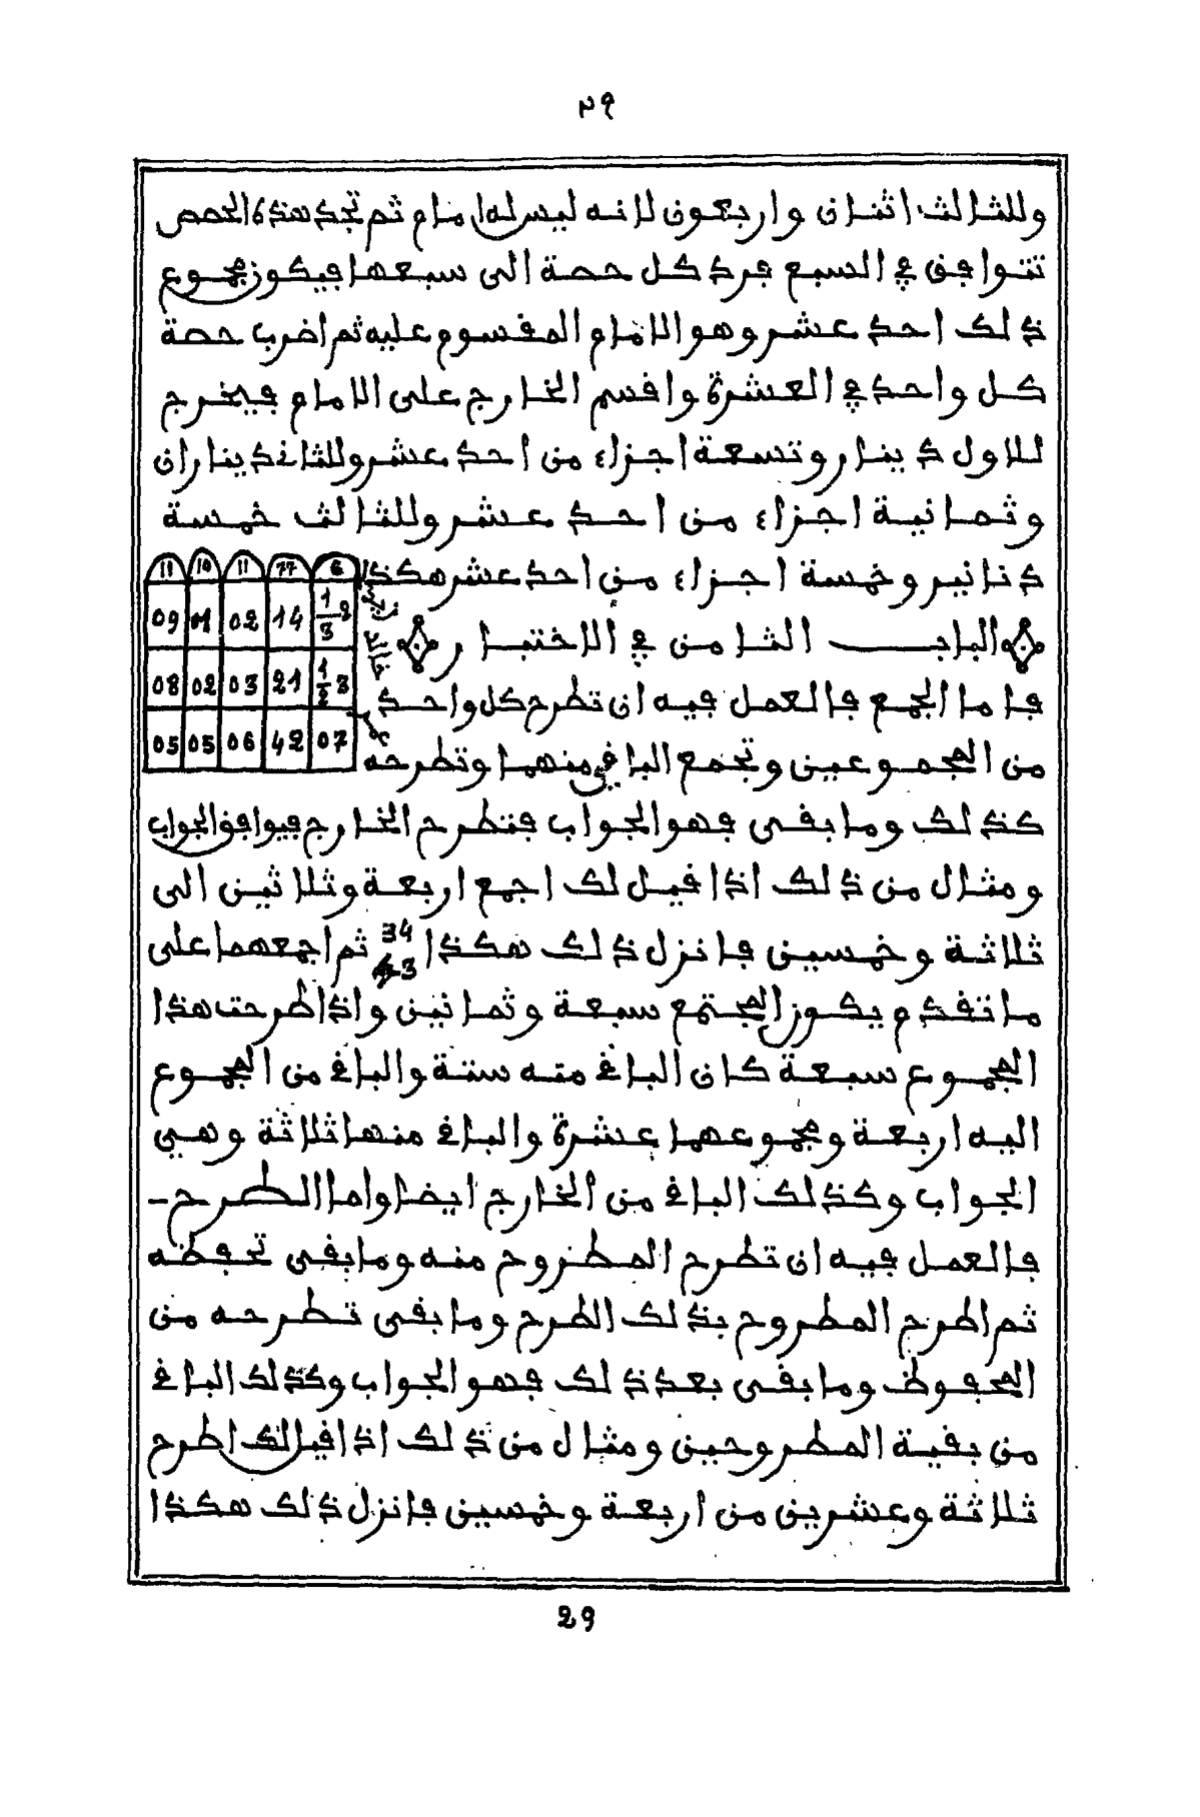 ٢٩
وللثالث اثنان واربعون لانه ليس له امام ثم تجد هذه الحصص
تتوافق في السبع فرد كل حصة الى سبعها فيكون مجموع
ذلك احد عشر وهو الامام المقسوم عليه ثم اضرب حصة
كل واحد في العشرة واقسم الخارج على الامام فيخرج
للاول دينار وتسعة اجزاء من احد عشر وللثاني ديناران
وثمانية اجزاء من احد عشر وللثالث خمسة
دنانير وخمسة اجزاء من احد عشر هكذا
11 10 11 77 6
09 01 02 14 1/3 2
08 02 03 21 1/2 3
05 05 06 42 07
الباب الثامن في الاختبار
فاما الجمع فالعمل فيه ان تطرح كل واحد
من المجموعين وتجمع الباقي منهما وتطرحه
كذلك وما بقى فهو الجواب فتطرح الخارج فيوافق الجواب
ومثال من ذلك اذا قيل لك اجمع اربعة وثلاثين الى
ثلاثة وخمسين فانزل ذلك هكذا 34 ثم اجمعهما على
ما تقدم يكون المجتمع سبعة وثمانين واذا طرحت هذا
المجموع سبعة كان الباقي منه ستة والباقي من المجموع
اليه اربعة ومجموعهما عشرة والباقي منها ثلاثة وهي
الجواب وكذلك الباقي من الخارج ايضا واما الطرح
فالعمل فيه ان تطرح المطروح منه وما بقى تحفظه
ثم اطرح المطروح بذلك الطرح وما بقى تطرحه من
المحفوظ وما بقى بعد ذلك فهو الجواب وكذلك الباقي
من بقية المطروحين ومثال من ذلك اذا قيل لك اطرح
ثلاثة وعشرين من اربعة وخمسين فانزل ذلك هكذا
29